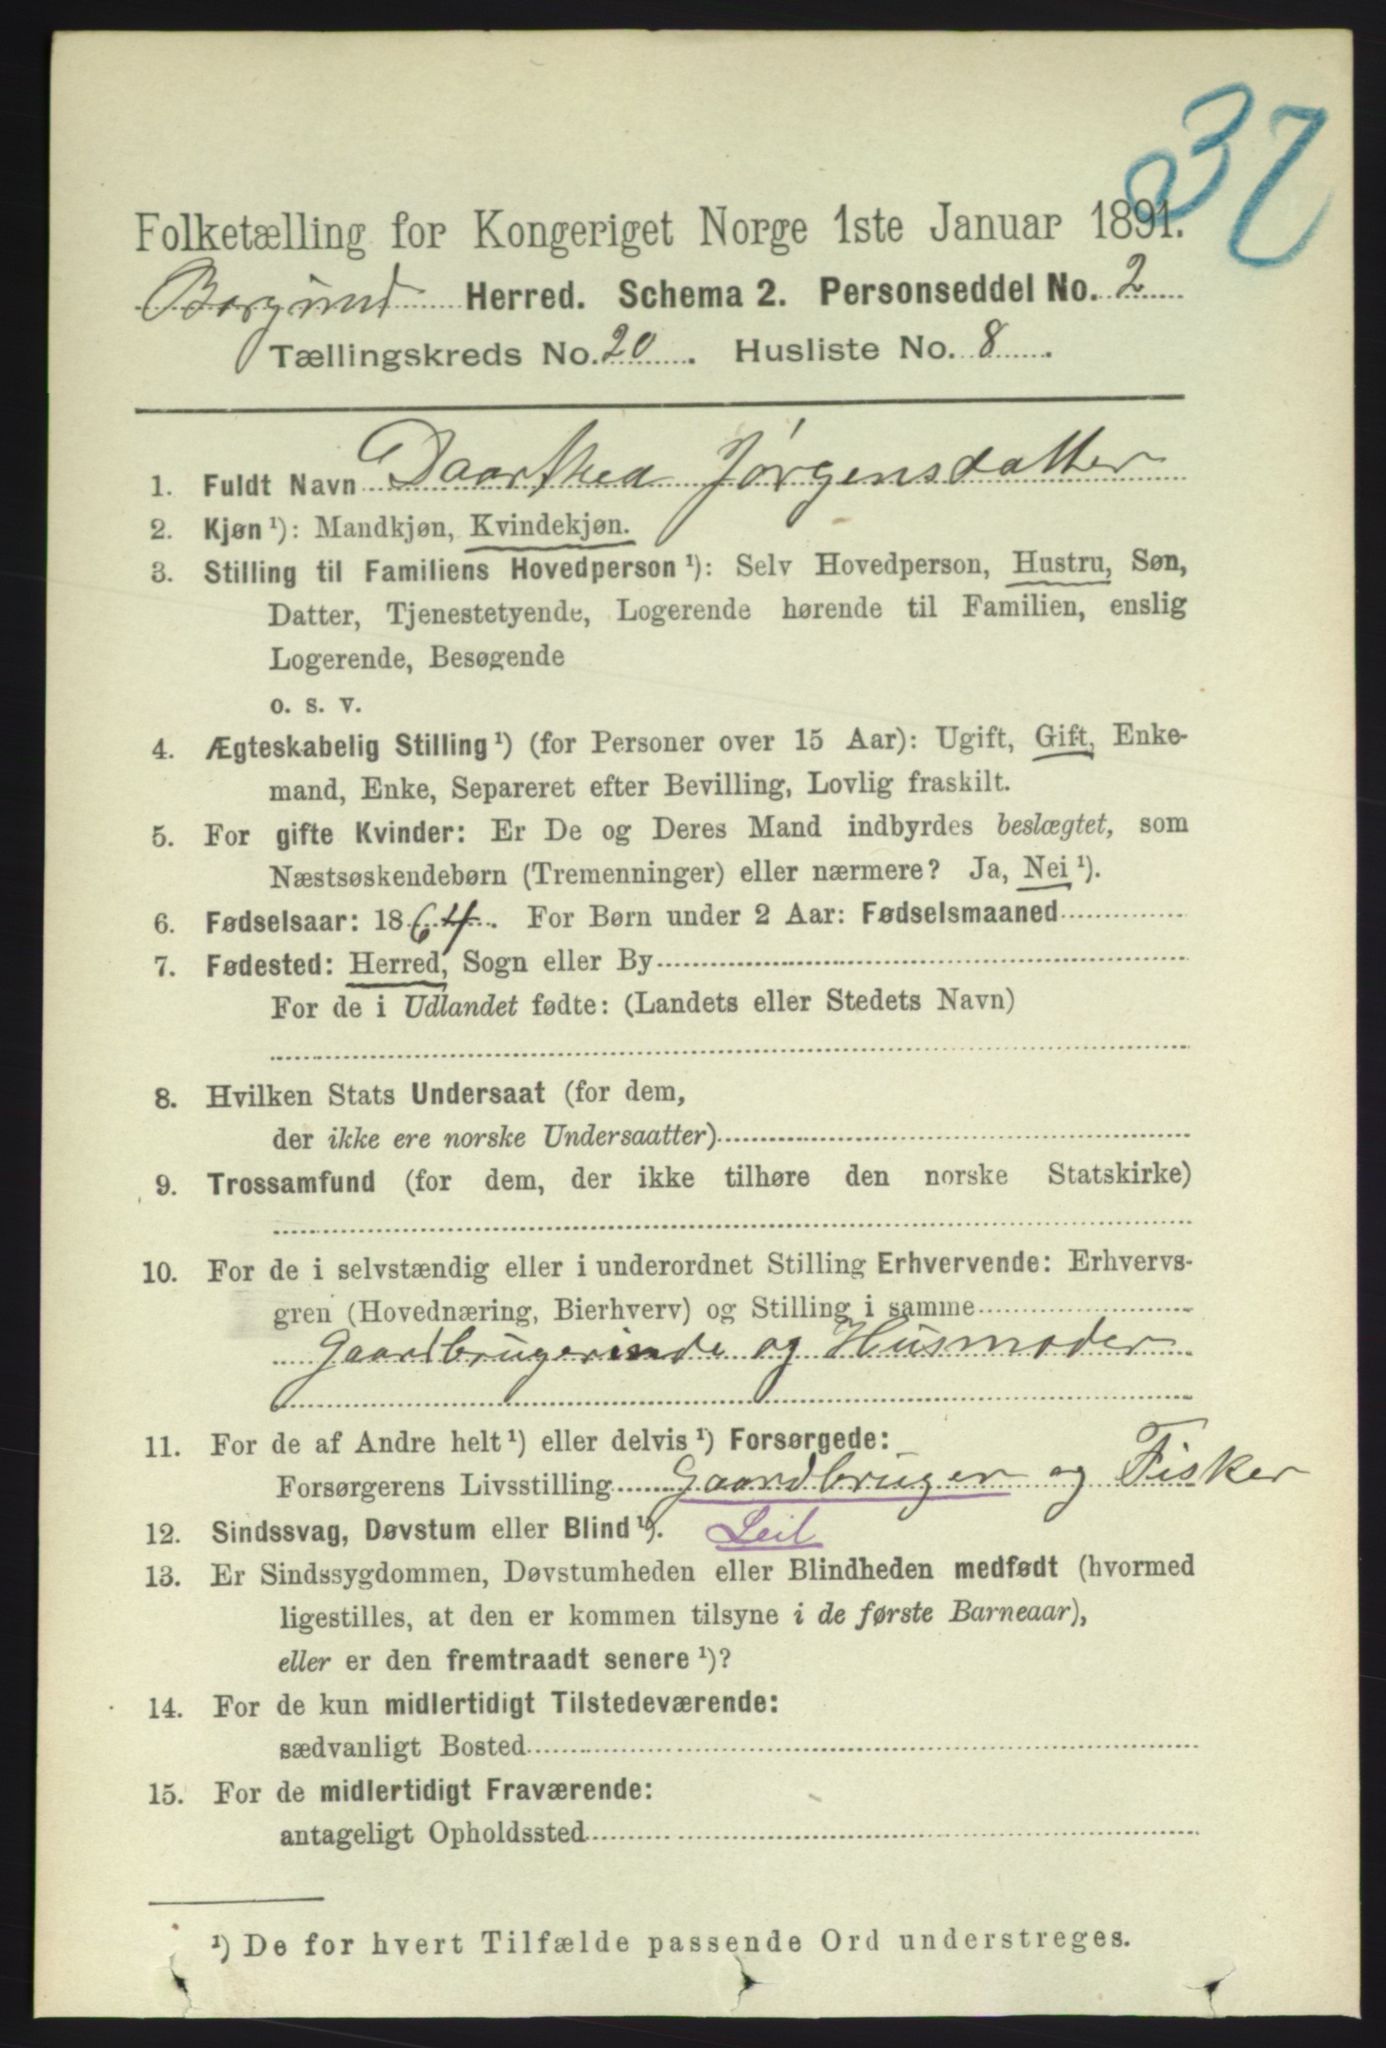 37
Folketælling for Kongeriget Norge 1ste Januar 1891.
Borgund Herred. Schema 2. Personseddel No. 2
Tællingskreds No. 20. Husliste No. 8.
1. Fuldt Navn Daarthea Jørgensdatter
2. Kjøn ¹): Mandkjøn, Kvindekjøn.
3. Stilling til Familiens Hovedperson ¹): Selv Hovedperson, Hustru, Søn,
Datter, Tjenestetyende, Logerende hørende til Familien, enslig
Logerende, Besøgende
o. s. v.
4. Ægteskabelig Stilling ¹) (for Personer over 15 Aar): Ugift, Gift, Enke-
mand, Enke, Separeret efter Bevilling, Lovlig fraskilt.
5. For gifte Kvinder: Er De og Deres Mand indbyrdes beslægtet, som
Næstsøskendebørn (Tremenninger) eller nærmere? Ja, Nei ¹).
6. Fødselsaar: 1864. For Børn under 2 Aar: Fødselsmaaned
7. Fødested: Herred, Sogn eller By
For de i Udlandet fødte: (Landets eller Stedets Navn)
8. Hvilken Stats Undersaat (for dem,
der ikke ere norske Undersaatter)
9. Trossamfund (for dem, der ikke tilhøre den norske Statskirke)
10. For de i selvstændig eller i underordnet Stilling Erhvervende: Erhvervs-
gren (Hovednæring, Bierhverv) og Stilling i samme
Gaardbrugerinde og Husmoder
11. For de af Andre helt ¹) eller delvis ¹) Forsørgede:
Forsørgerens Livsstilling Gaardbruger og Fisker
12. Sindssvag, Døvstum eller Blind ¹). Leil
13. Er Sindssygdommen, Døvstumheden eller Blindheden medfødt (hvormed
ligestilles, at den er kommen tilsyne i de første Barneaar),
eller er den fremtraadt senere ¹)?
14. For de kun midlertidigt Tilstedeværende:
sædvanligt Bosted
15. For de midlertidigt Fraværende:
antageligt Opholdssted
¹) De for hvert Tilfælde passende Ord understreges.